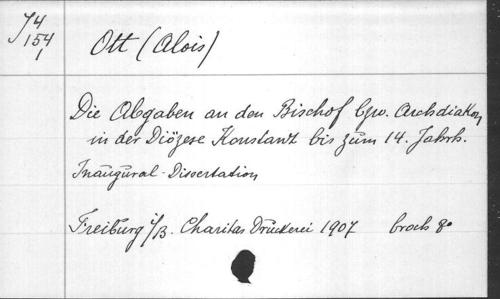 J4
154
1
Ott (Alois)
Die Abgaben an den Bischof bzw. Archidiakon
in der Diözese Konstanz bis zum 14. Jahrh.
Inaugural-Dissertation
Freiburg i/B. Charitas Druckerei 1907 broch 8°